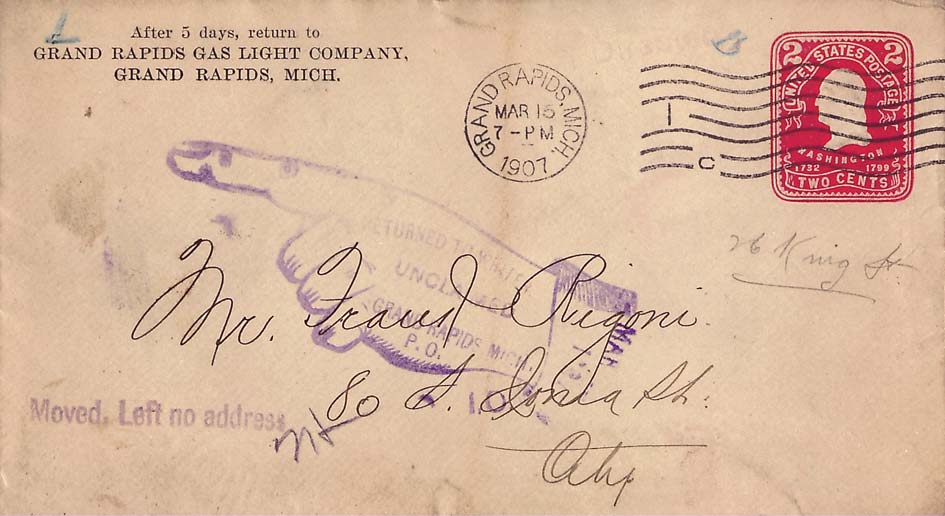 L
After 5 days, return to
GRAND RAPIDS GAS LIGHT COMPANY,
GRAND RAPIDS, MICH.
GRAND RAPIDS, MICH.
MAR 15
7-PM
1907
1
C
2 2
UNITED STATES POSTAGE
WASHINGTON
1732 1799
TWO CENTS
26 King St
RETURNED TO WRITER
UNCLAIMED
GRAND RAPIDS MICH.
P.O.
MAR
Mr. Rigoni
80 S. Ionia St.
City
Moved, Left no address